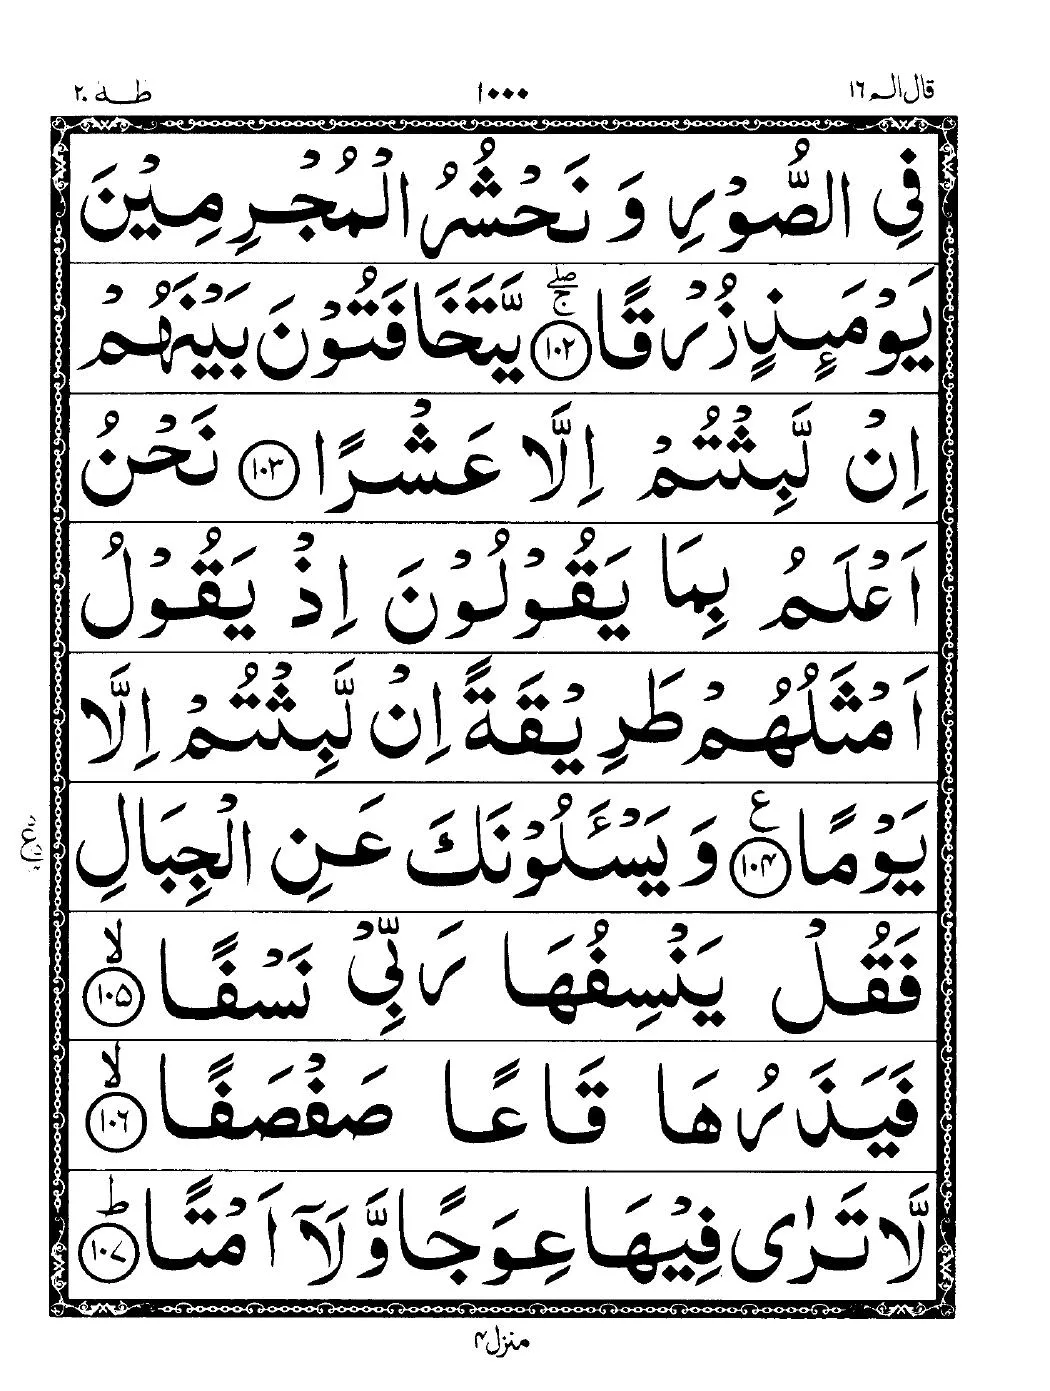 قال الم ١٦
١٠٠٠
طه ٢٠
فِي الصُّوْرِ وَ نَحْشُرُ الْمُجْرِمِيْنَ
يَوْمَئِذٍ زُرْقًا ۖۚ ﴿١٠٢﴾ يَّتَخَافَتُوْنَ بَيْنَهُمْ
اِنْ لَّبِثْتُمْ اِلَّا عَشْرًا ﴿١٠٣﴾ نَحْنُ
اَعْلَمُ بِمَا يَقُوْلُوْنَ اِذْ يَقُوْلُ
اَمْثَلُهُمْ طَرِيْقَةً اِنْ لَّبِثْتُمْ اِلَّا
يَوْمًا ﴿١٠٤﴾ ع وَ يَسْـَٔلُوْنَكَ عَنِ الْجِبَالِ
فَقُلْ يَنْسِفُهَا رَبِّيْ نَسْفًا ۙ ﴿١٠٥﴾
فَيَذَرُهَا قَاعًا صَفْصَفًا ۙ ﴿١٠٦﴾
لَّا تَرٰى فِيْهَا عِوَجًا وَّ لَاۤ اَمْتًا ؕ ﴿١٠٧﴾
منزل ٤